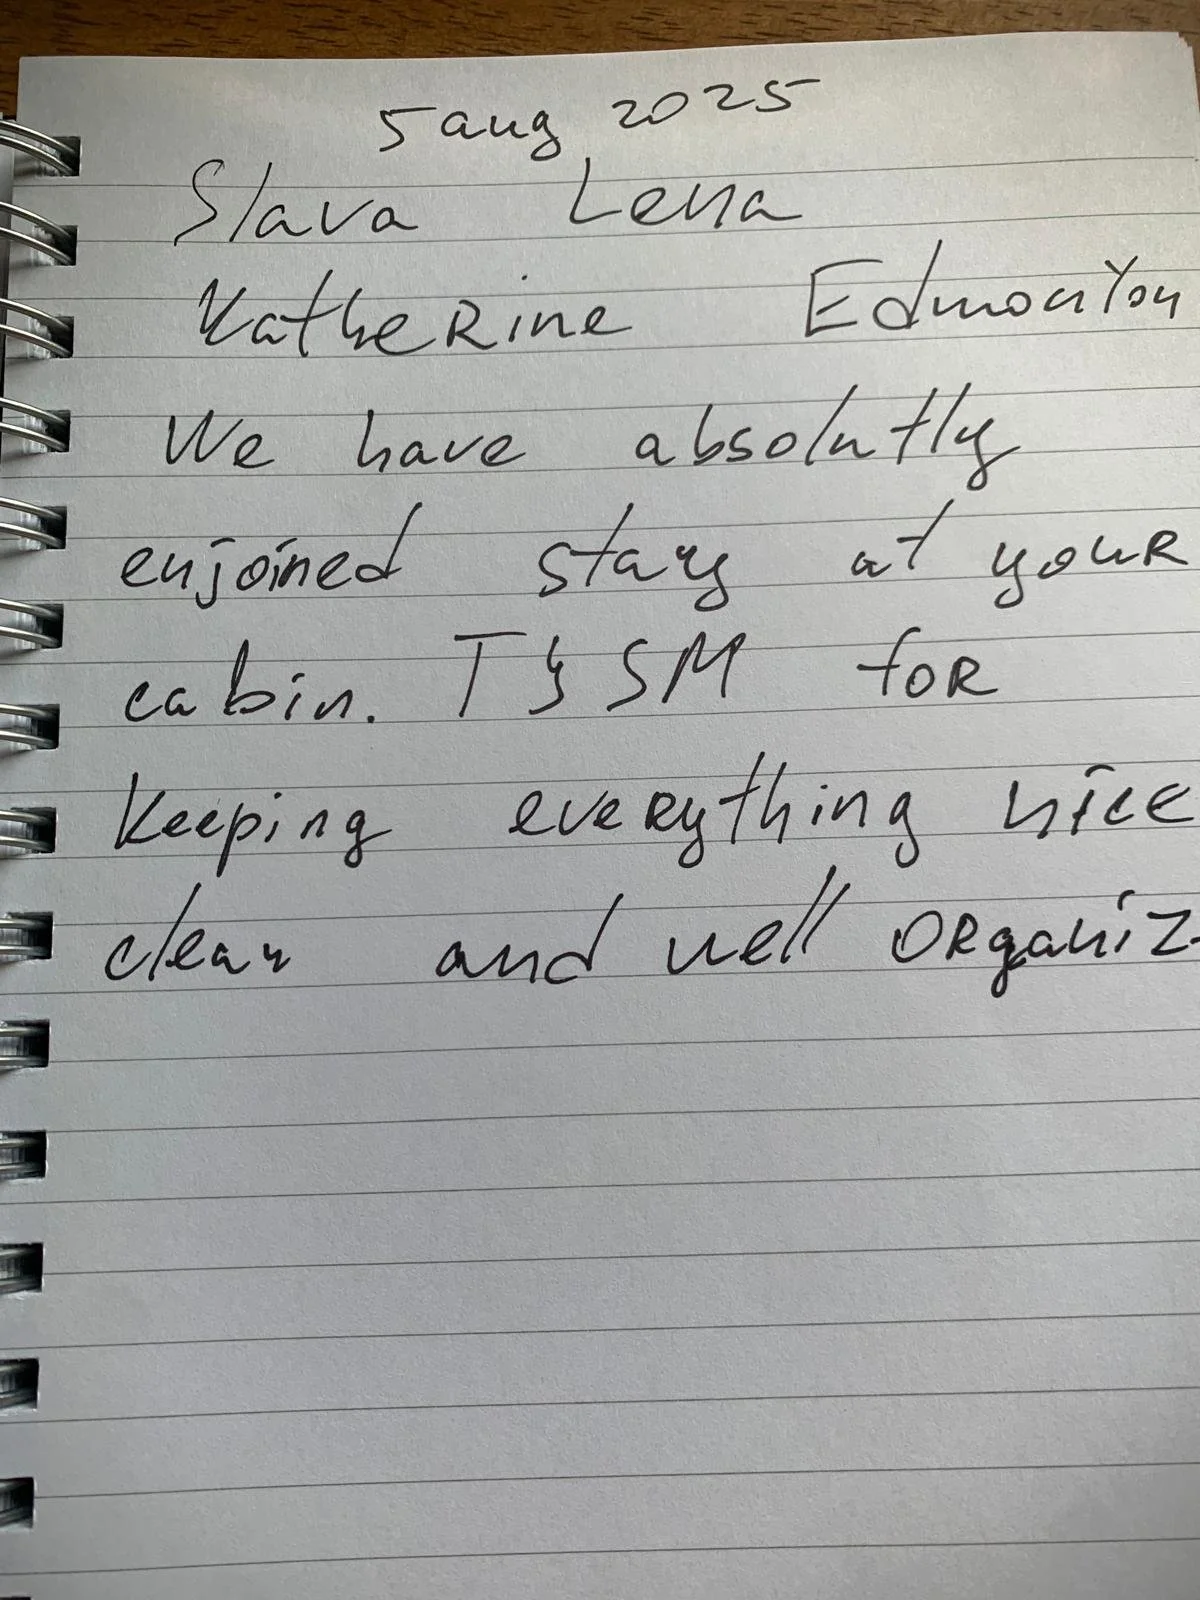 5 aug 2025
Slava Lena
Katherine Edmonton
We have absolutly
enjoined stay at your
cabin. T SM for
Keeping everything nice
clean and well organiz